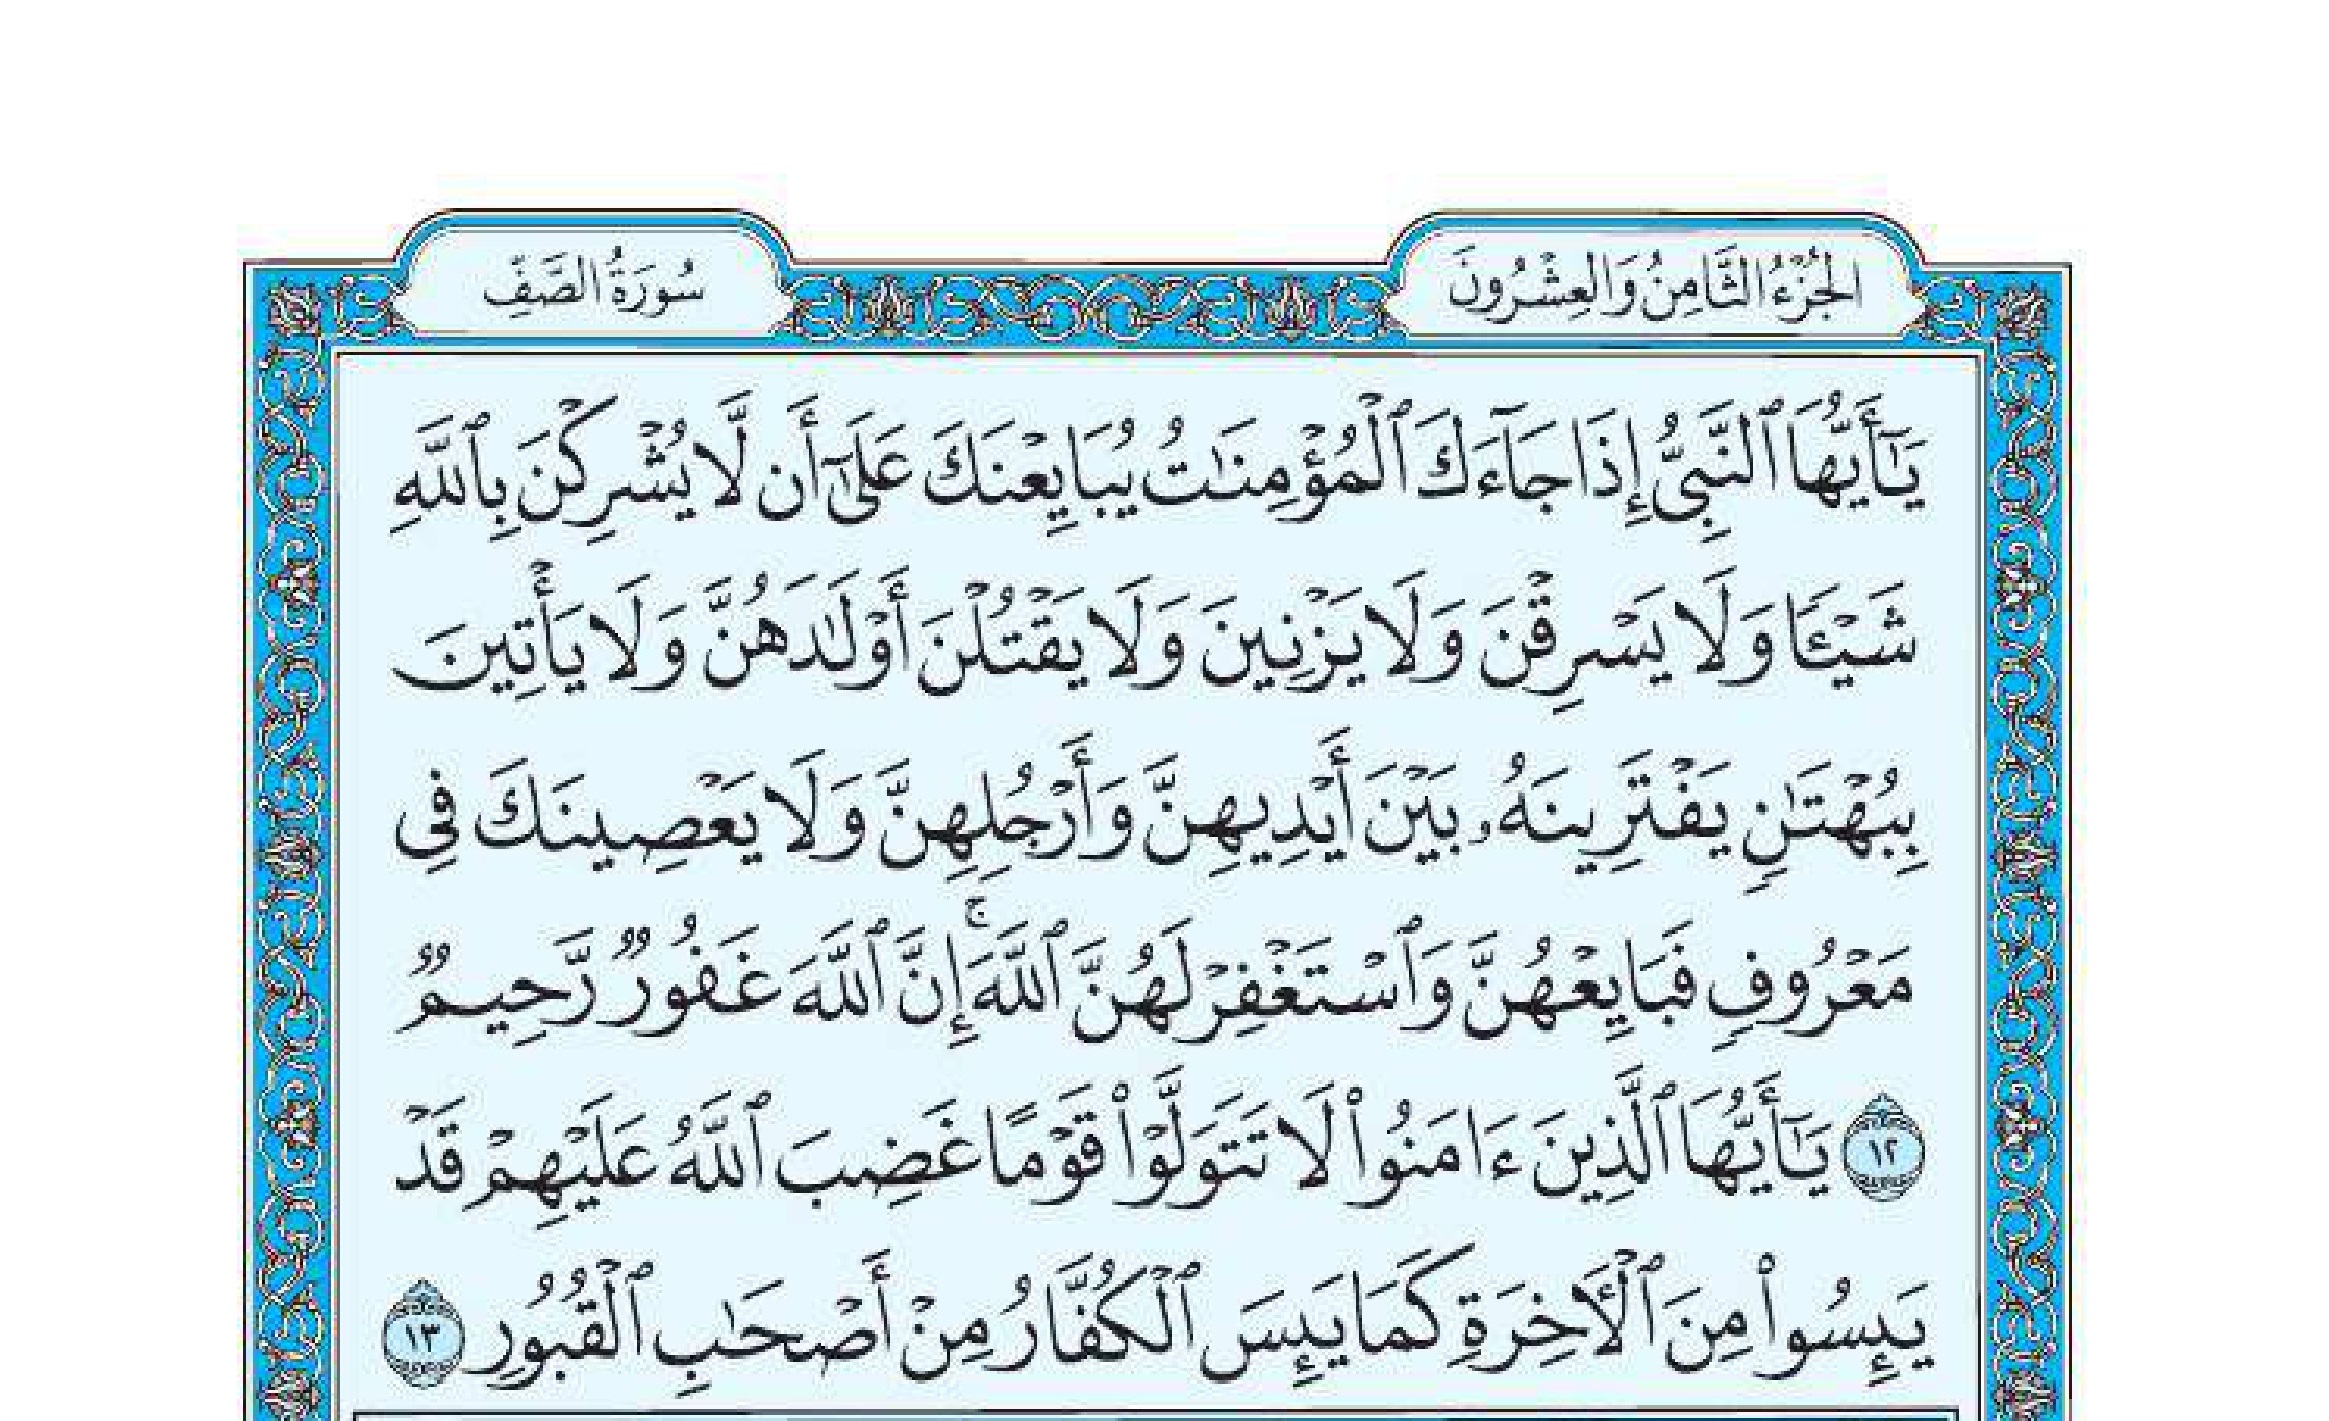 الجُزْءُ الثَّامِنُ وَالعِشْرُونَ
سُورَةُ الصَّفِّ
يَٰٓأَيُّهَا ٱلنَّبِىُّ إِذَا جَآءَكَ ٱلْمُؤْمِنَٰتُ يُبَايِعْنَكَ عَلَىٰٓ أَن لَّا يُشْرِكْنَ بِٱللَّهِ
شَيْـًٔا وَلَا يَسْرِقْنَ وَلَا يَزْنِينَ وَلَا يَقْتُلْنَ أَوْلَٰدَهُنَّ وَلَا يَأْتِينَ
بِبُهْتَٰنٍ يَفْتَرِينَهُۥ بَيْنَ أَيْدِيهِنَّ وَأَرْجُلِهِنَّ وَلَا يَعْصِينَكَ فِى
مَعْرُوفٍ فَبَايِعْهُنَّ وَٱسْتَغْفِرْ لَهُنَّ ٱللَّهَ ۚ إِنَّ ٱللَّهَ غَفُورٌ رَّحِيمٌ
١٢ يَٰٓأَيُّهَا ٱلَّذِينَ ءَامَنُوا۟ لَا تَتَوَلَّوْا۟ قَوْمًا غَضِبَ ٱللَّهُ عَلَيْهِمْ قَدْ
يَئِسُوا۟ مِنَ ٱلْءَاخِرَةِ كَمَا يَئِسَ ٱلْكُفَّارُ مِنْ أَصْحَٰبِ ٱلْقُبُورِ ١٣